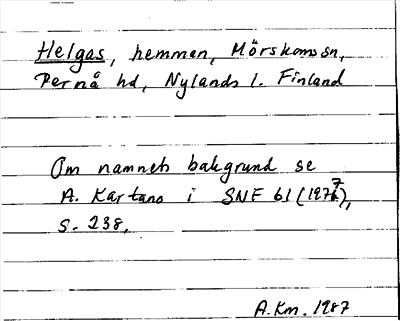 Helgas, hemman, Mörskoms sn,
Pernå hd, Nylands l. Finland
Om namnets bakgrund se
A. Kartano i SNF 61 (1977),
s. 238.
A.Km. 1987